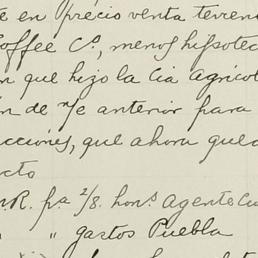 te en precio venta terreno
Coffee Cº, menos hipotec
n que hizo la Cia agricol
ón de n/e anterior para
cciones, que ahora qued
cto
n.R. pª 2/8. honˢ agente Cu
" " gastos Puebla